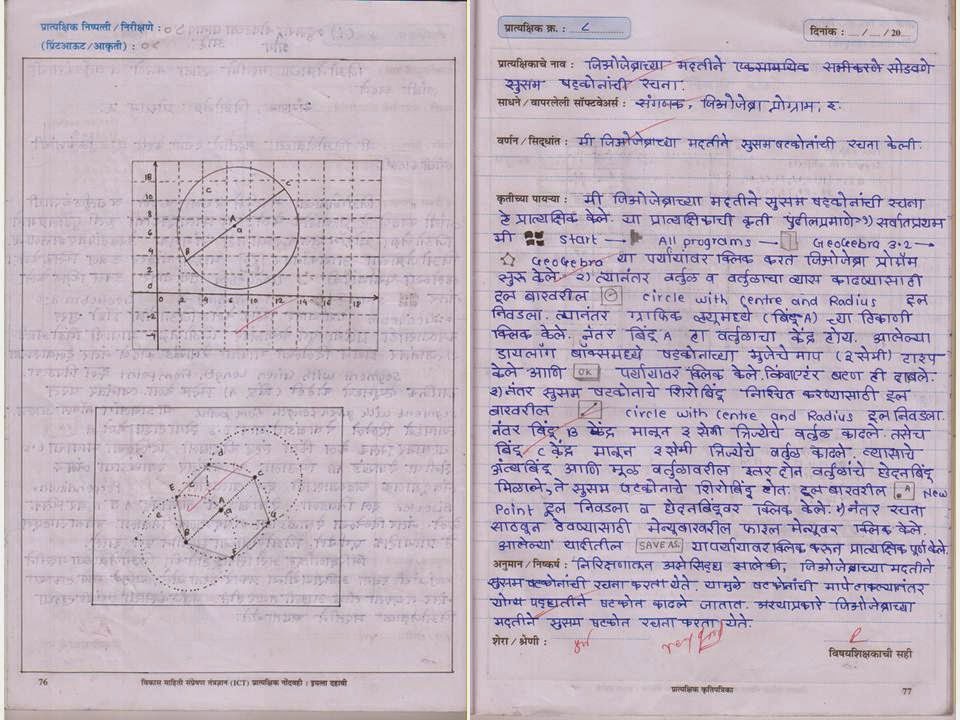 प्रात्यक्षिक निष्पत्ती / निरीक्षणे :
(प्रिंटआऊट / आकृती) :
18
10
8
6
4
2
0
0 2 4 6 8 10 12 14 16 18
-2
-4
C
C
A
a
B
d
E
C
C
A
a
B
G
F
76
विकास माहिती संप्रेषण तंत्रज्ञान (ICT) प्रात्यक्षिक नोंदवही : इयत्ता दहावी
प्रात्यक्षिक क्र. : ८
दिनांक : __/__/20
प्रात्यक्षिकाचे नाव : जिओजेब्राच्या मदतीने एकसामायिक समीकरणे सोडवणे
सुसम षटकोनांची रचना.
साधने / वापरलेली सॉफ्टवेअर्स : संगणक, जिओजेब्रा प्रोग्राम, इ.
वर्णन / सिद्धांत : मी जिओजेब्राच्या मदतीने सुसमषटकोतांची रचना केली.
कृतीच्या पायऱ्या : मी जिओजेब्राच्या मदतीने सुसम षटकोनांची रचना
हे प्रात्यक्षिक केले. या प्रात्यक्षिकाची कृती पुढीलप्रमाणे १) सर्वातप्रथम
मी Start → All programs → GeoGebra 3.2 →
GeoGebra या पर्यायावर क्लिक करत जिओजेब्रा प्रोग्रॅम
सुरू केले. २) त्यानंतर वर्तुळ व वर्तुळाचा व्यास काढण्यासाठी
टूल बारवरील circle with centre and Radius टूल
निवडला. त्यानंतर ग्राफिक व्ह्यूमध्ये (बिंदू A) च्या ठिकाणी
क्लिक केले. नंतर बिंदू A हा वर्तुळाचा केंद्र होय. आलेल्या
डायलॉग बाक्समध्ये षटकोनाच्या भुजेचे माप (३ सेमी) टाइप
केले आणि OK पर्यायावर क्लिक केले. किंवा एंटर बटण ही दाबले.
३) नंतर सुसम षटकोनाचे शिरोबिंदू निश्चित करण्यासाठी टूल
बारवरील circle with centre and Radius टूल निवडला.
नंतर बिंदू B केंद्र मानून ३ सेमी त्रिज्येचे वर्तुळ काढले. तसेच
बिंदू C केंद्र मानून ३ सेमी त्रिज्येचे वर्तुळ काढले. व्यासाचे
अंत्यबिंदू आणि मूळ वर्तुळावरील इतर दोन वर्तुळांचे छेदनबिंदू
मिळाले, ते सुसम षटकोनाचे शिरोबिंदू होत. टूल बारवरील A New
Point टूल निवडला व छेदनबिंदूवर क्लिक केले. ४) नंतर रचना
साठवून ठेवण्यासाठी मेन्यूबारवरील फाइल मेन्यूवर क्लिक केले.
आलेल्या यादीतील SAVE AS. या पर्यायावर क्लिक करून प्रात्यक्षिक पूर्ण केले.
अनुमान / निष्कर्ष : निरिक्षणाअंत असे सिद्ध झालेकी, जिओजेब्राच्या मदतीने
सुसम षटकोनांची रचना करता येते. यामुळे षटकोनांची मापे टाकल्यानंतर
योग्य पद्धतीने षटकोन काढले जातात. अश्याप्रकारे जिओजेब्राच्या
मदतीने सुसम षटकोन रचना करता येते.
शेरा / श्रेणी :
विषयशिक्षकाची सही
प्रात्यक्षिक कृतिपत्रिका
77